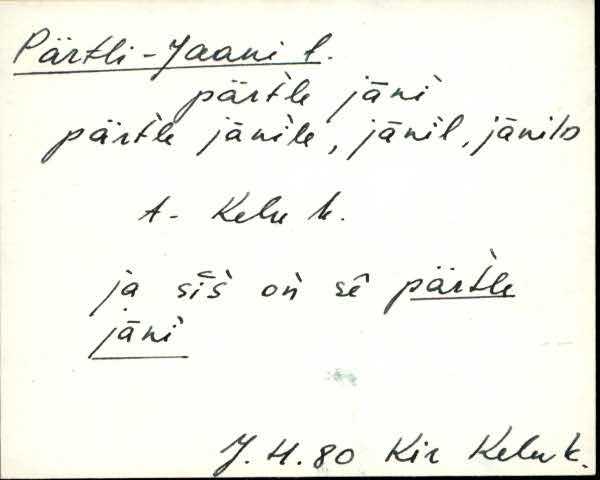 Pärtli-Jaani t.
pärt̀le jāǹi
pärt̀le jāǹile, jāǹil, jāǹilD
A- Kelu k.
ja sīš̀ oǹ sē pärt̀le
jāǹi
J. H. 80 Kir Kelu k.